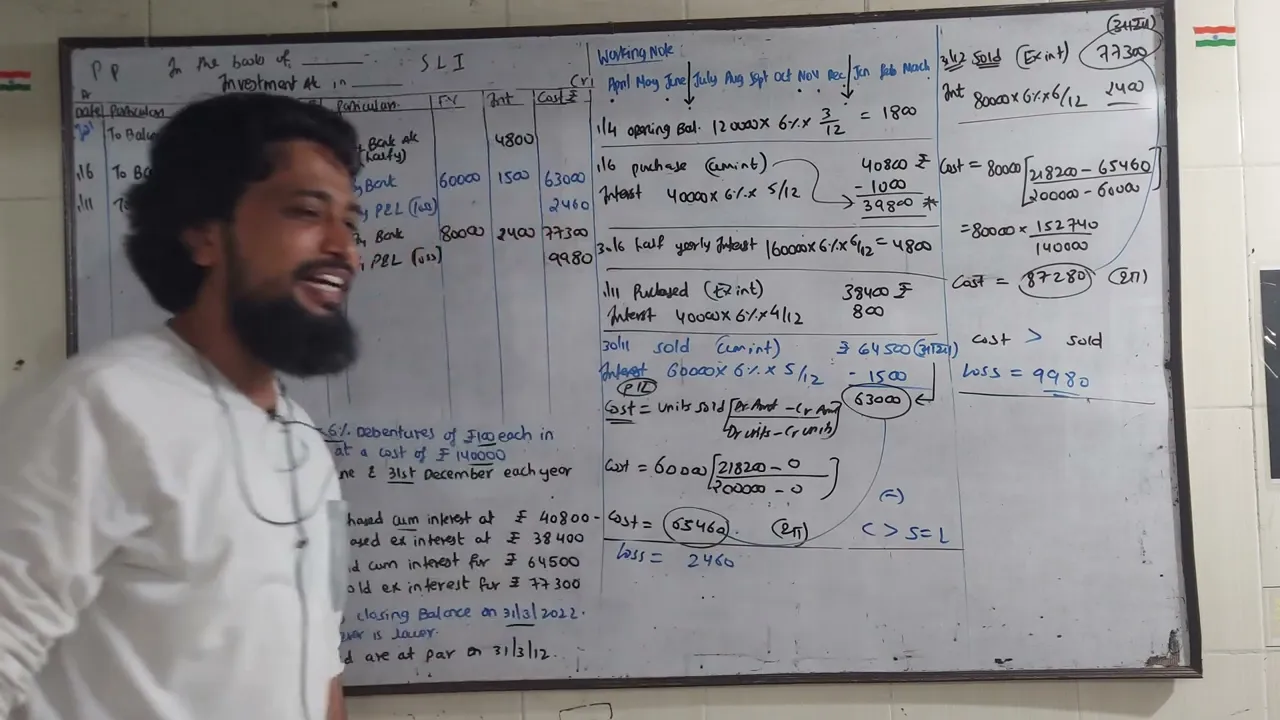 PP In the books of ________ SLI
Investment A/c in ________ (Cr)
Date Particulars Particulars FV Int Cost ₹
Bank A/c 4800
(halfy)
1/6 Bank 60000 1500 63000
1/11 P&L (loss) 2460
Bank 80000 2400 77300
P&L (loss) 9980
6% Debentures of ₹100 each in
at a cost of ₹ 140000
ne & 31st December each year
hased cum interest at ₹ 40800-
ased ex interest at ₹ 38400
d cum interest for ₹ 64500
old ex interest for ₹ 77300
closing Balance on 31/3/2022.
is lower.
d are at par on 31/3/12.
Working Note:
April May June July Aug Sept Oct Nov Dec Jan Feb March
1/4 opening Bal. 120000 x 6% x 3/12 = 1800
1/6 purchase (cum int) 40800 ₹
Interest 40000 x 6% x 5/12 - 1000
39800 *
30/6 half yearly Interest 160000 x 6% x 6/12 = 4800
1/11 Purchased (Ex int) 38400 ₹
Interest 40000 x 6% x 4/12 800
30/11 sold (cum int) ₹ 64500
Interest 60000 x 6% x 5/12 - 1500
P/L 63000
Cost = units sold [Dr Amt - Cr Amt
Dr units - Cr units]
Cost = 60000 [218200 - 0
200000 - 0]
Cost = 65460.
(-)
C > S = L
Loss = 2460
31/12 Sold (Ex int) 77300
Int 80000 x 6% x 6/12 2400
Cost = 80000 [218200 - 65460
200000 - 60000]
= 80000 x 152740
140000
Cost = 87280
Cost > sold
Loss = 9980